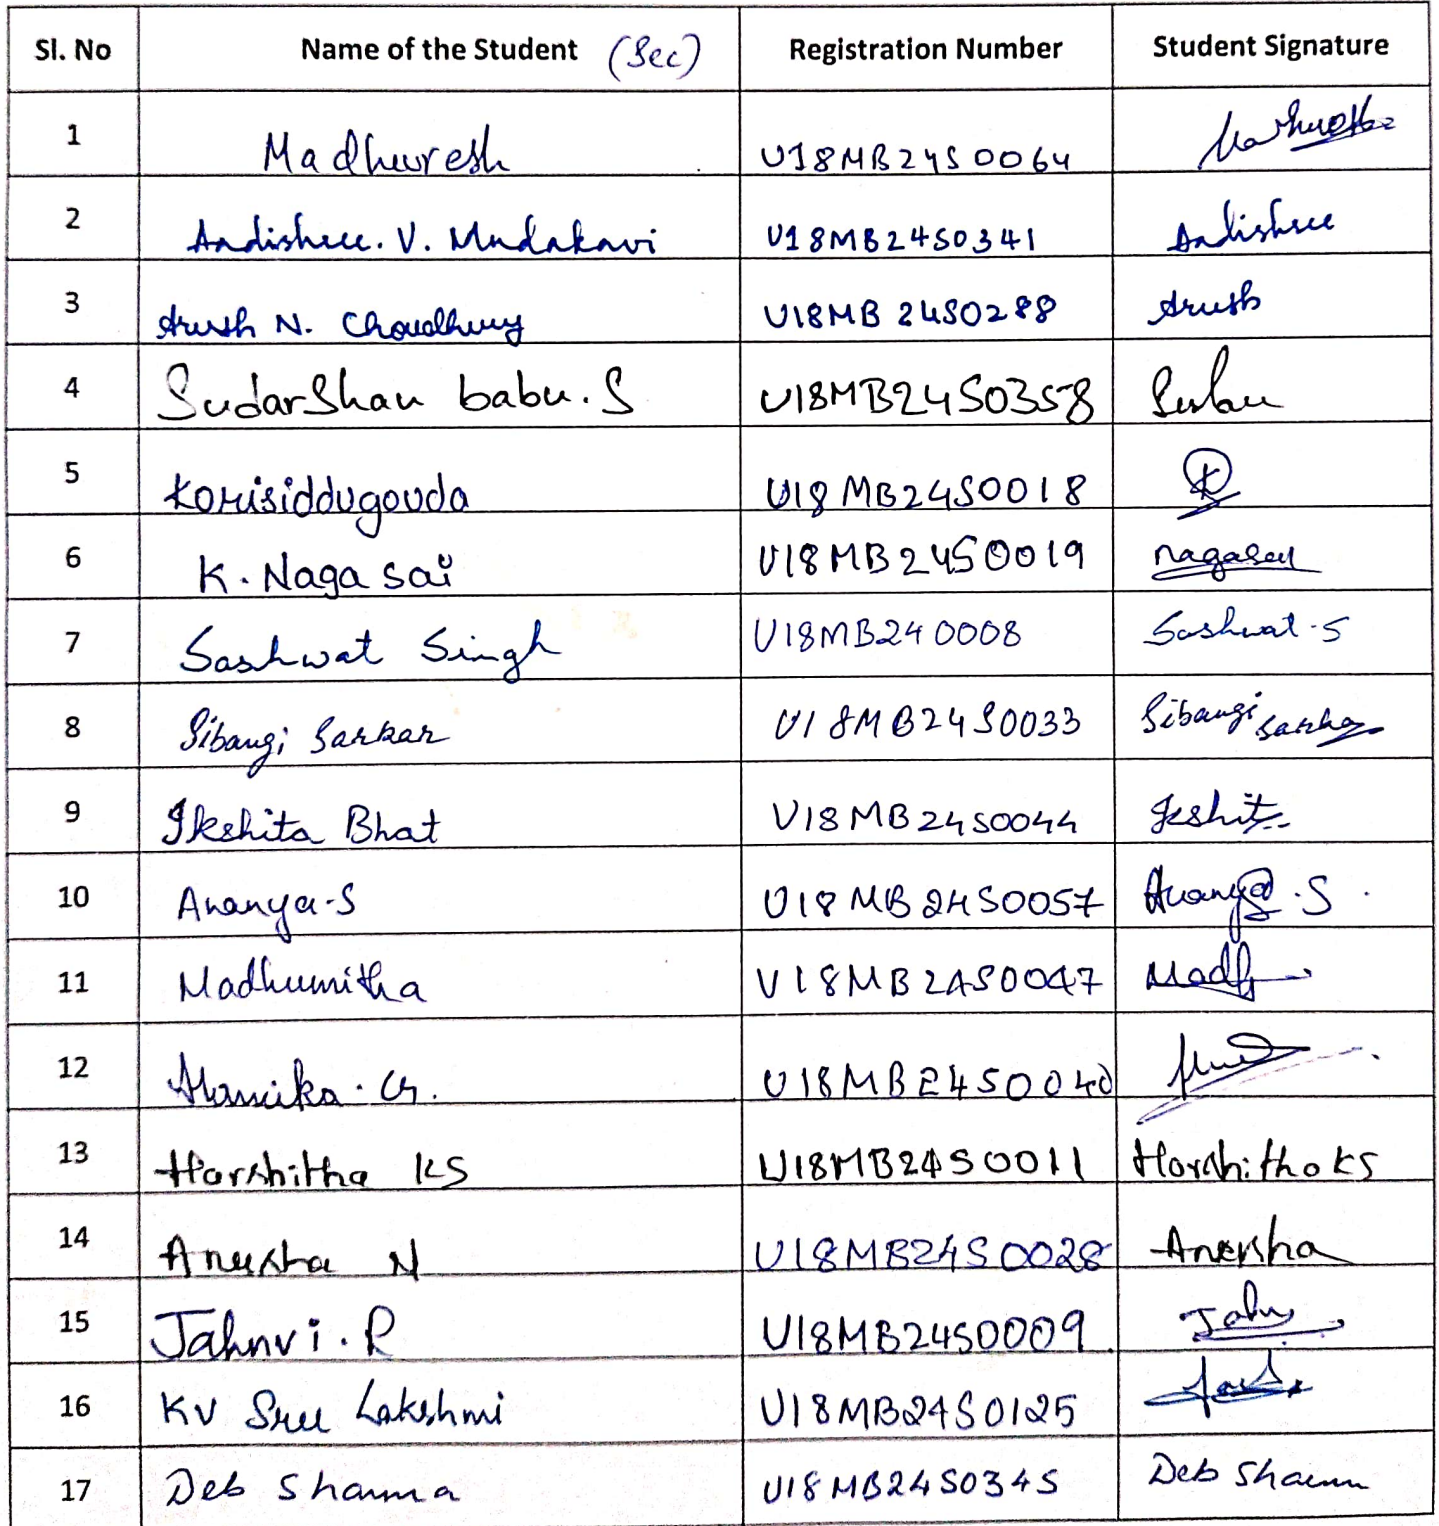 Sl. No Name of the Student (Sec) Registration Number Student Signature
1 Madhuresh U18MB24S0064
2 Aadishree. V. Mudakavi U18MB24S0341 Aadishree
3 Arush N. Choudhury U18MB24S0288 Arush
4 Sudarshan babu. S U18MB24S0358
5 Korisiddugouda U18MB24S0018 K
6 K. Naga sai U18MB24S0019 nagasai
7 Sashwat Singh U18MB240008 Sashwat-S
8 Sibangi Sarkar U18MB24S0033 Sibangi Sarkar
9 Ikshita Bhat U18MB24S0044 Ikshita
10 Ananya-S U18MB24S0057 Ananya.S
11 Madhumitha U18MB24S0047 Madh
12 U18MB24S0040
13 Harshitha KS U18MB24S0011 Harshitha KS
14 Anusha N U18MB24S0028 Anusha
15 Jahnvi. R U18MB24S0009 Jahn
16 KV Sree Lakshmi U18MB24S0125
17 Deb Sharma U18MB24S0345 Deb Sharma